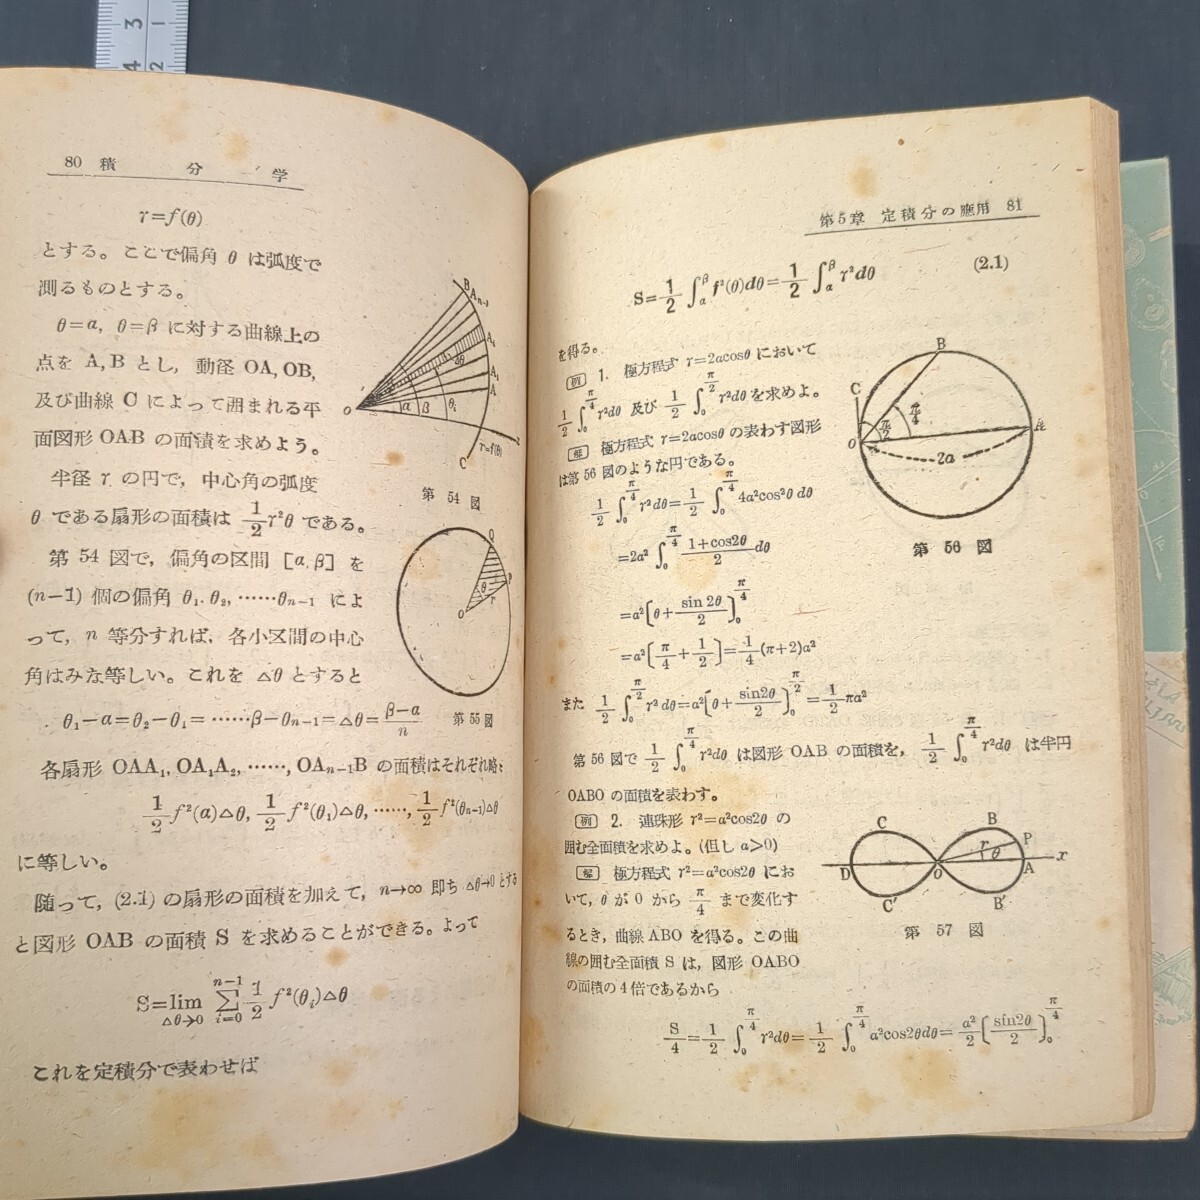 80 積分学
r=f(θ)
とする。ここで偏角 θ は弧度で
測るものとする。
θ=α, θ=β に対する曲線上の
点を A, B とし, 動径 OA, OB,
及び曲線 C によって囲まれる平
面図形 OAB の面積を求めよう。
半径 r の円で, 中心角の弧度
θ である扇形の面積は 1/2 r²θ である。
第 54 図で, 偏角の区間 [α, β] を
(n-1) 個の偏角 θ₁, θ₂, ……θₙ₋₁ によ
って, n 等分すれば, 各小区間の中心
角はみな等しい。これを △θ とすると
θ₁-α=θ₂-θ₁=……β-θₙ₋₁=△θ=(β-α)/n
各扇形 OAA₁, OA₁A₂, ……, OAₙ₋₁B の面積はそれぞれ略
1/2 f²(α)△θ, 1/2 f²(θ₁)△θ, ……, 1/2 f²(θₙ₋₁)△θ
に等しい。
随って, (2.1) の扇形の面積を加えて, n→∞ 即ち △θ→0 とする
と図形 OAB の面積 S を求めることができる。よって
S=lim_{△θ→0} Σ_{i=0}^{n-1} 1/2 f²(θᵢ)△θ
これを定積分で表わせば
B Aₙ₋₁ Aᵢ A₁ A O α β θᵢ △θ r=f(θ) C
第 54 図
Q P O θ r
第 55 図
第5章 定積分の應用 81
S=1/2 ∫_α^β f²(θ)dθ=1/2 ∫_α^β r²dθ (2.1)
を得る。
例 1. 極方程式 r=2acosθ において
1/2 ∫_0^{π/4} r²dθ 及び 1/2 ∫_0^{π/2} r²dθ を求めよ。
解 極方程式 r=2acosθ の表わす図形
は第 56 図のような円である。
1/2 ∫_0^{π/4} r²dθ=1/2 ∫_0^{π/4} 4a²cos²θ dθ
=2a² ∫_0^{π/4} (1+cos2θ)/2 dθ
=a²[θ+sin 2θ/2]_0^{π/4}
=a²[π/4+1/2]=1/4(π+2)a²
また 1/2 ∫_0^{π/2} r²dθ=a²[θ+sin2θ/2]_0^{π/2}=1/2 πa²
第 56 図で 1/2 ∫_0^{π/4} r²dθ は図形 OAB の面積を, 1/2 ∫_0^{π/4} r²dθ は半円
OABO の面積を表わす。
例 2. 連珠形 r²=a²cos2θ の
囲む全面積を求めよ。(但し a>0)
解 極方程式 r²=a²cos2θ にお
いて, θ が 0 から π/4 まで変化す
るとき, 曲線 ABO を得る。この曲
線の囲む全面積 S は, 図形 OABO
の面積の 4 倍であるから
S/4=1/2 ∫_0^{π/4} r²dθ=1/2 ∫_0^{π/4} a²cos2θdθ=a²/2[sin2θ/2]_0^{π/4}
B C O A π/4 π/2 2a
第 56 図
C B P r θ D O A x C′ B′
第 57 図
3 1
4 2